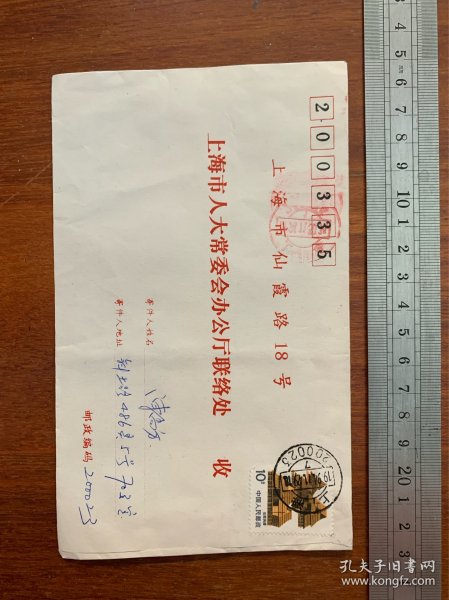 200335
上海市仙霞路18号
上海市人大常委会办公厅联络处 收
寄件人姓名
寄件人地址 486弄5号702室
邮政编码 200023
10分
中国人民邮政
200023
孔夫子旧书网
www.kongfz.com
3 4 5 6 7 8 9 10 1 2 3 4 5 6 7 8 9 20 1 2 3